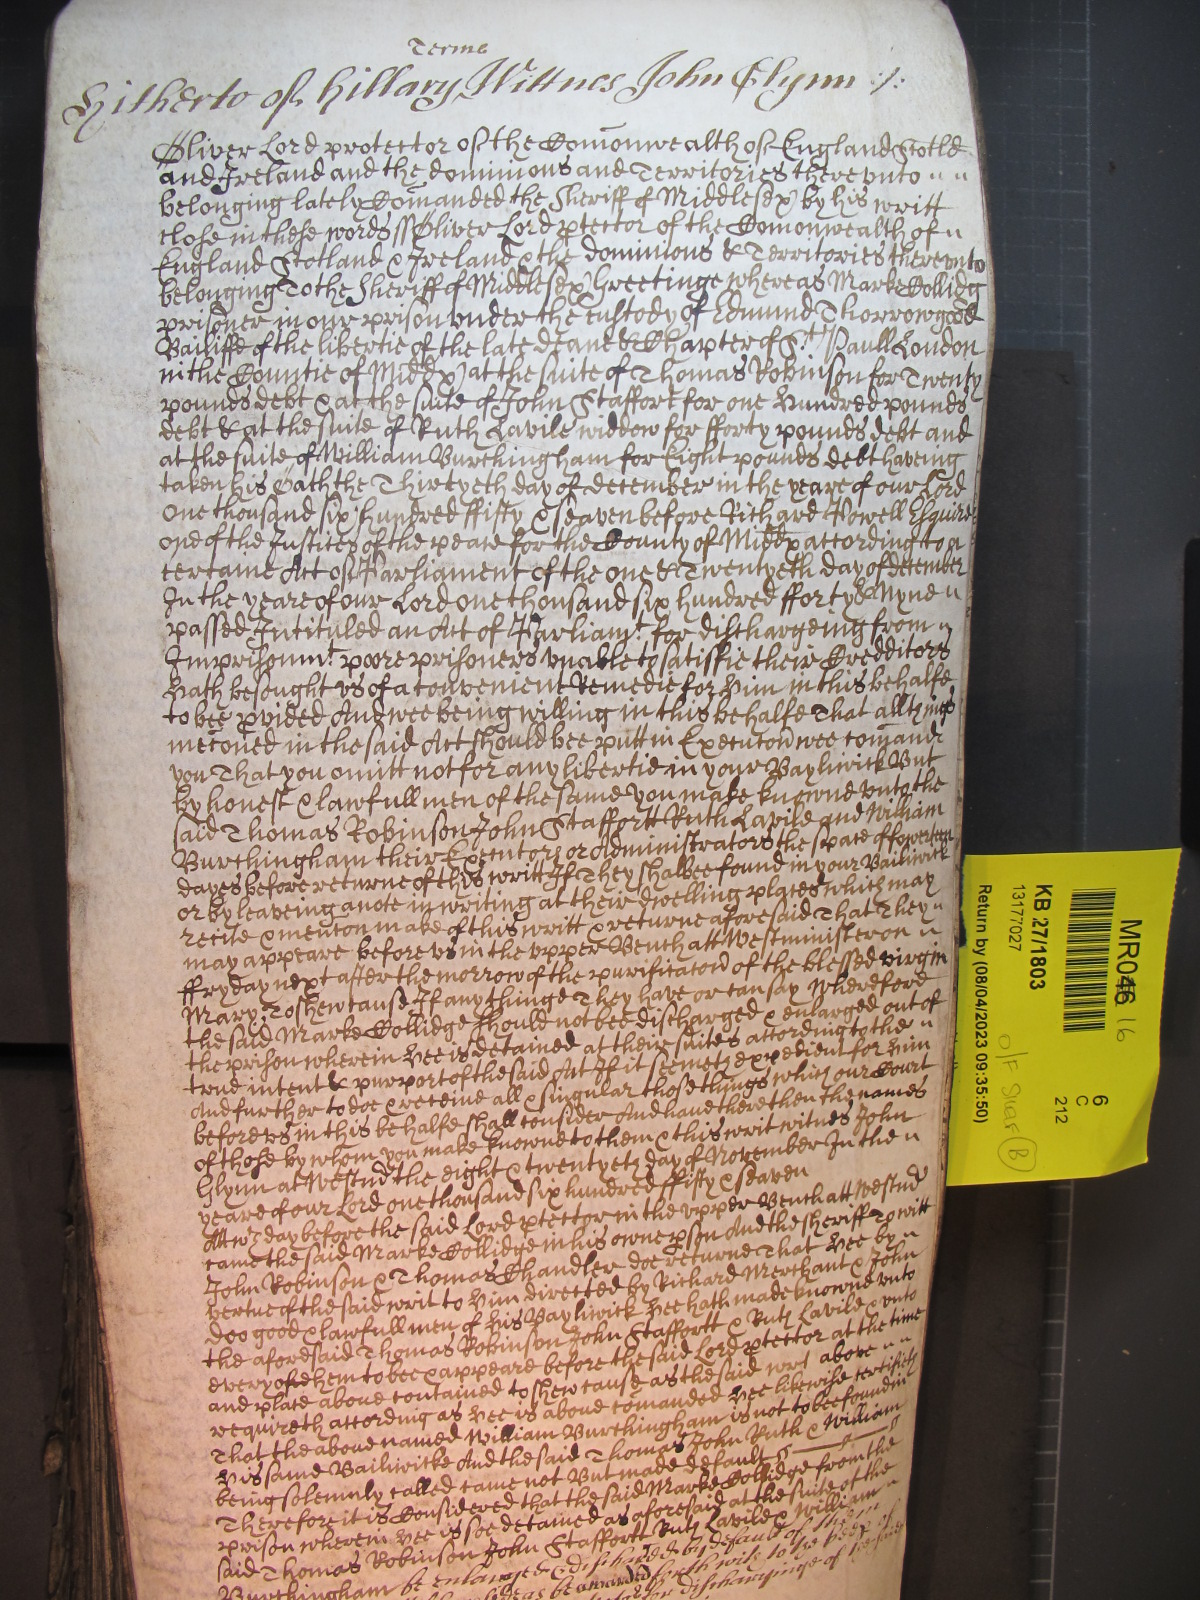 Terme
Hitherto of Hillary Wittnes John Glynn :/:
Oliver Lord protector of the Comonwealth of England Scotld
and Ireland and the dominions and Territories there vnto
belonging lately Comanded the Sheriff of Middlesex by his writt
close in these words ss Oliver Lord ptector of the Comonwealth of
England Scotland & Ireland & the dominions & Territories therevnto
belonging To the Sheriff of Middlesex Greetinge whereas Marke Collidg
prisoner in our prison vnder the custody of Edmund Thorrowgood
Bailiffe of the libertie of the late deane & Chapter of St Paull London
in the Countie of Middx at the suite of Thomas Robinson for Twenty
pounds debt & at the suite of John Staffort for one hundred pounds
debt & at the suite of Ruth Lavile widdow for fforty pounds debt and
at the suite of William Burchingham for Eight pounds debt haveing
taken his Oath the Thirtyeth day of december in the yeare of our Lord
one thousand six hundred ffifty & seaven before Richard Powell Esquire
one of the Justices of the peace for the County of Middx according to a
certaine Act of Parliament of the one & Twentyeth day of december
In the yeare of our Lord one thousand six hundred fforty & Nyne
passed Intituled an Act of Parliamt for dischargeing from
Imprisonmt poore prisoners vnable to satisfie their Creditors
Hath besought vs of a convenient Remedie for him in this behalfe
to bee pvided And wee being willing in this behalfe That all things
mecõned in the said Act should bee putt in Execucõn wee comand
you That you omitt not for any libertie in your Bayliwick But
by honest & lawfull men of the same you make knowne vnto the
said Thomas Robinson John Staffortt Ruth Lavile and William
Burchingham their Executors or Administrators the space of fowerteen
dayes before returne of this writt If They shalbee found in your Bailiwick
or by leaveing a note in writing at their dwelling places which may
recite & mencõn make of this writt & returne aforesaid That They
may appeare before vs in the vpper Bench att Westminister on
ffryday next after the morrow of the purificacõn of the blessed virgin
Mary, To shew cause If any thinge They have or can say Wherefore
the said Marke Collidge should not bee discharged & enlarged out of
the prison wherein hee is detained at their suites according to the
true intent & purport of the said Act If it seemeth expedient for him
And further to doe & receive all & singular those things which our Court
before vs in this behalfe shall consider And have there then the names
of those by whom you make knowne to them & this writ witnes John
Glynn at Westmr the eight & twentyeth day of November In the
yeare of our Lord one thousand six hundred ffifty & seaven
Att wch day before the said Lord ptector in the vpper Bench att Westmr
came the said Marke Collidge in his owne pson And the sheriff To witt
John Robinson & Thomas Chandler doe returne That hee by
vertue of the said writ to him directed by Richard Merchant & John
doo good & lawfull men of his Bayliwick hee hath made knowne vnto
the aforesaid Thomas Robinson John Staffortt & Ruth Lavile & vnto
every of them to bee & appeare before the said Lord ptector at the time
and place above contained to shew cause as the said writ above
requireth according as hee is above comanded hee likewise certifieth
That the above named William Burchingham is not to bee found in
his said Bailiwicke And the said Thomas John Ruth & William
being solemnly called came not But made default
Therefore it is Considered that the said Marke Collidge from the
prison wherein hee is soe detained as aforesaid at the suite of the
said Thomas Robinson John Staffortt Ruth Lavile & William
Burchingham be enlarged & discharged by default of the
be awarded forthwith to the keep of
for dischargeinge of the said
MR046 16
6
C
212
KB 27/1803
13177027
Return by (08/04/2023 09:35:50)
O/F Shelf B